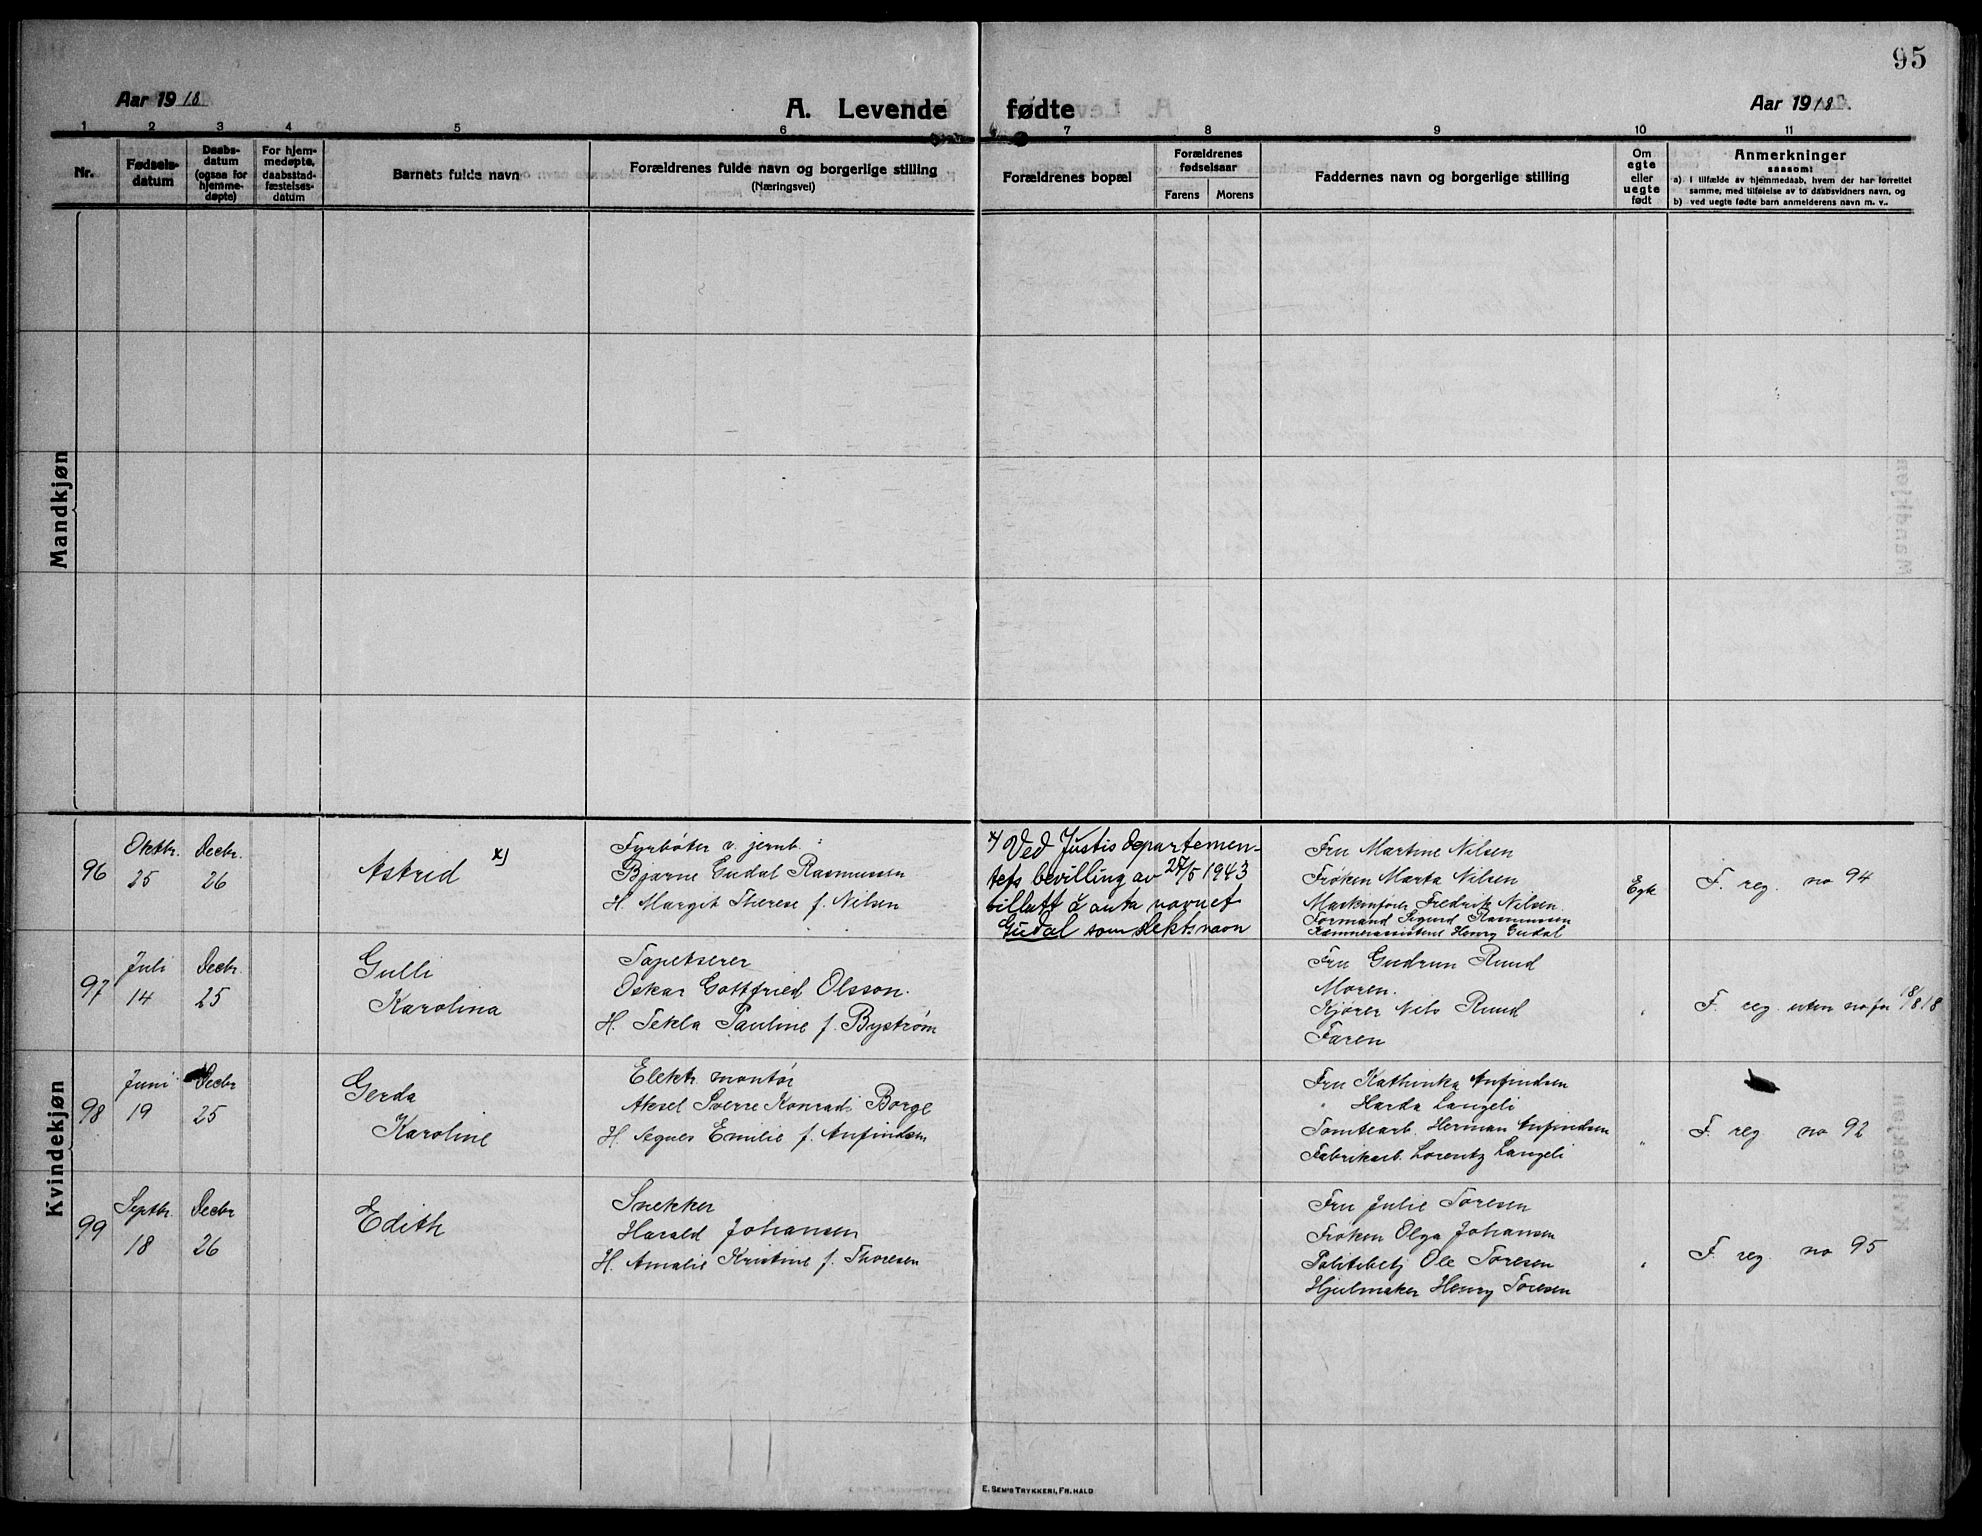 95
Aar 1918
A. Levende fødte
Aar 1918.
1 2 3 4 5 6 6 7 8 9 10 11
Nr.
Fødsels-
datum
Daabs-
datum
(ogsaa for
hjemme-
døpte)
For hjem-
medøpte,
daabsstad-
fæstelses-
datum
Barnets fulde navn
Forældrenes fulde navn og borgerlige stilling
(Næringsvei)
Forældrenes bopæl
Forældrenes
fødselsaar
Farens Morens
Faddernes navn og borgerlige stilling
Om
egte
eller
uegte
født
Anmerkninger
saasom:
a) I tilfælde av hjemmedaab, hvem der har forrettet
samme, med tilføielse av to daabsvidners navn, og
b) ved uegte fødte barn anmelderens navn m. v..
Mandkjøn
Kvindekjøn
96
Oktbr.
25
Decbr.
26
Astred x)
Fyrbøter v. jernb.
Bjarne Gudal Rasmussen
H. Margit Therese f. Nilsen
x) Ved Justisdepartemen-
tets bevilling av 27/5 1943
tillatt å anta navnet
Gudal som slektsnavn
Fru Martine Nilsen
Frøken Marta Nilsen
Maskinfører Fredrik Nilsen.
Formand Sigurd Rasmussen
Kæmnerassistent Henry Gudal
Egte
F. reg. no 94
97
Juli
14
Decbr.
25
Gulli
Karolina
Tapetserer
Oskar Gottfried Olsson.
H. Tekla Pauline f. Byström
Fru Gudrun Ruud
Moren.
Kjører Nils Ruud
Faren
"
F. reg. uten no før 18/8 18
98
Juni
19
Decbr
25
Gerda
Karoline
Elektr. montør
Aksel Sverre Konrad Borge
H. Agnes Emilie f. Anfindsen
Fru Kathinka Anfindsen
" Harda Langeli
Tomtearb. Herman Anfindsen
Fabrikarb. Lorentz Langeli
"
F. reg no 92
99
Septbr.
18
Decbr
26
Edith
Snekker
Harald Johansen
H. Amalie Kristine f. Thoresen
Fru Julie Toresen
Frøken Olga Johansen
Politibetj Ole Toresen
Hjulmaker Henry Toresen
"
F. reg. no 95
E. SEM'S TRYKKERI, FR.HALD